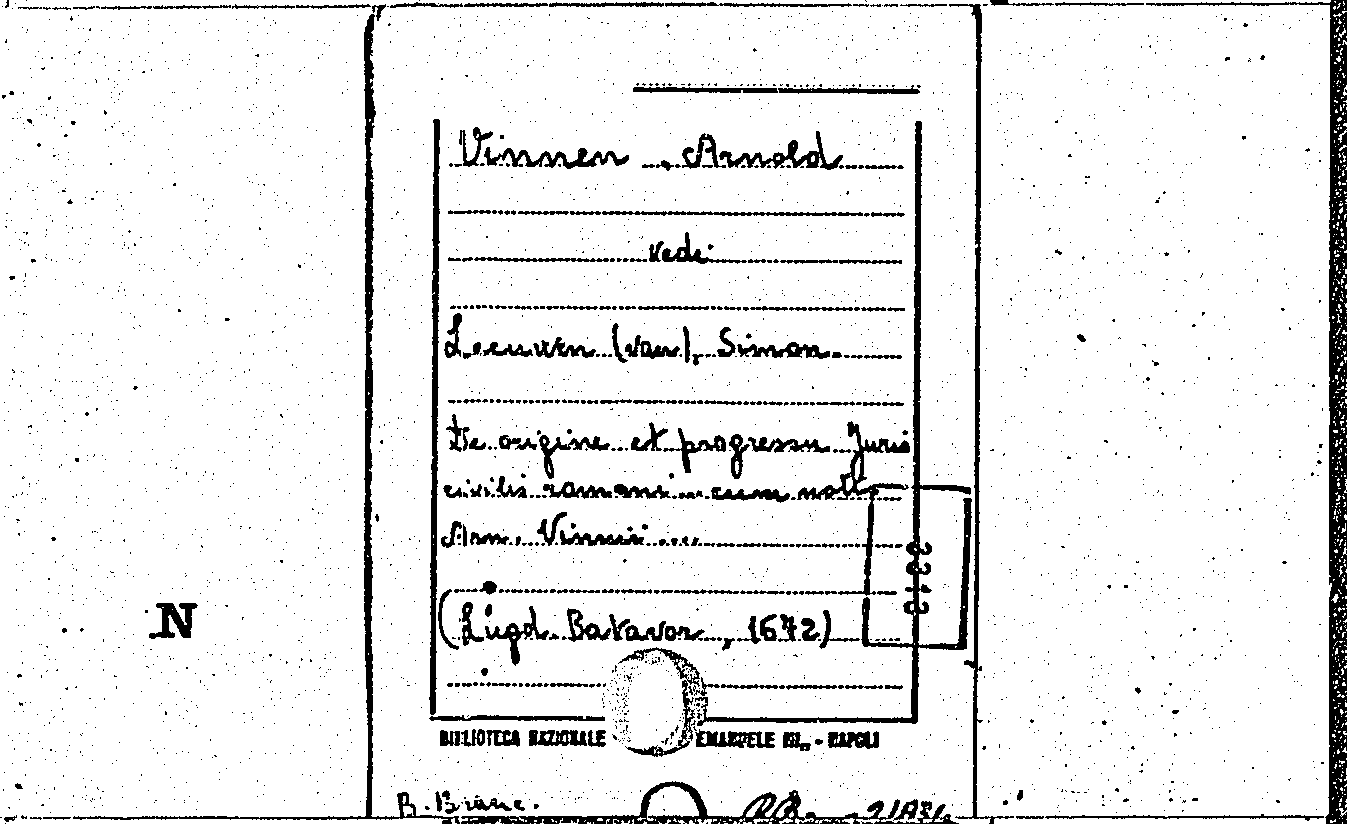 Vinnen, Arnold
vedi
Leeuwen (van), Simon.
De origine et progressu Juris
civilis romani... cum nott.
Arn. Vinnii ...
(Lugd. Batavor, 1672)
3313
N
BIBLIOTECA NAZIONALE EMANUELE III - NAPOLI
B.